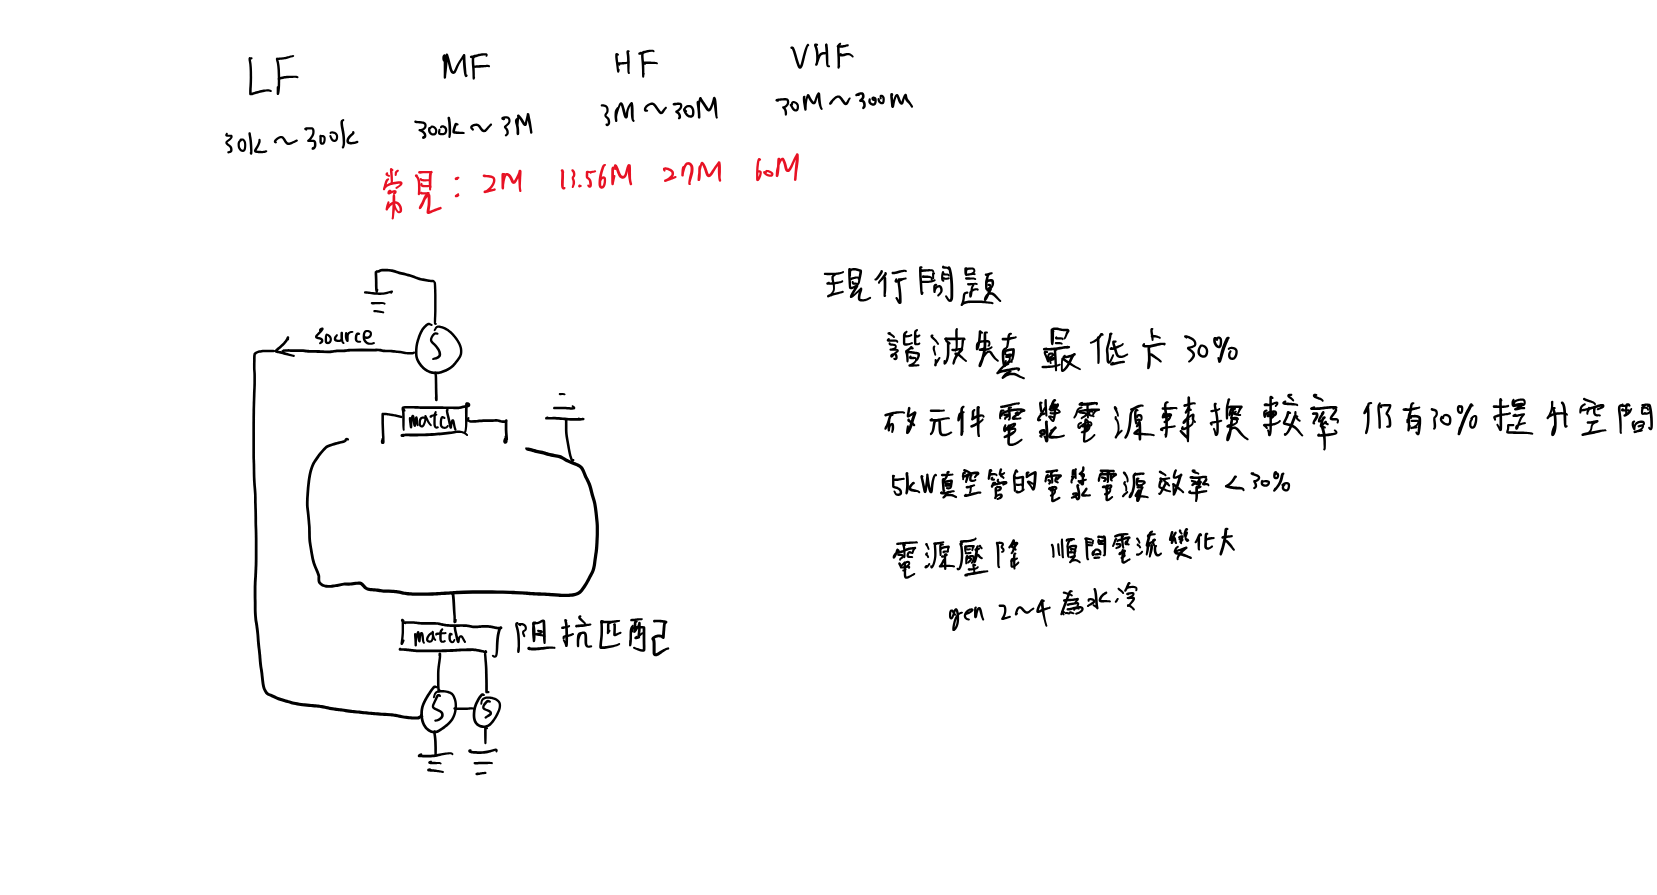 LF MF HF VHF
30k~300k 300k~3M 3M~30M 30M~300m
常見: 2M 13.56M 27M 60M
source
S
match
match 阻抗匹配
S S
現行問題
諧波失真 最低卡30%
矽元件電漿電源轉換較率 仍有30%提升空間
5kW真空管的電漿電源效率 <30%
電源壓降 順間電流變化大
gen 2~4 為水冷